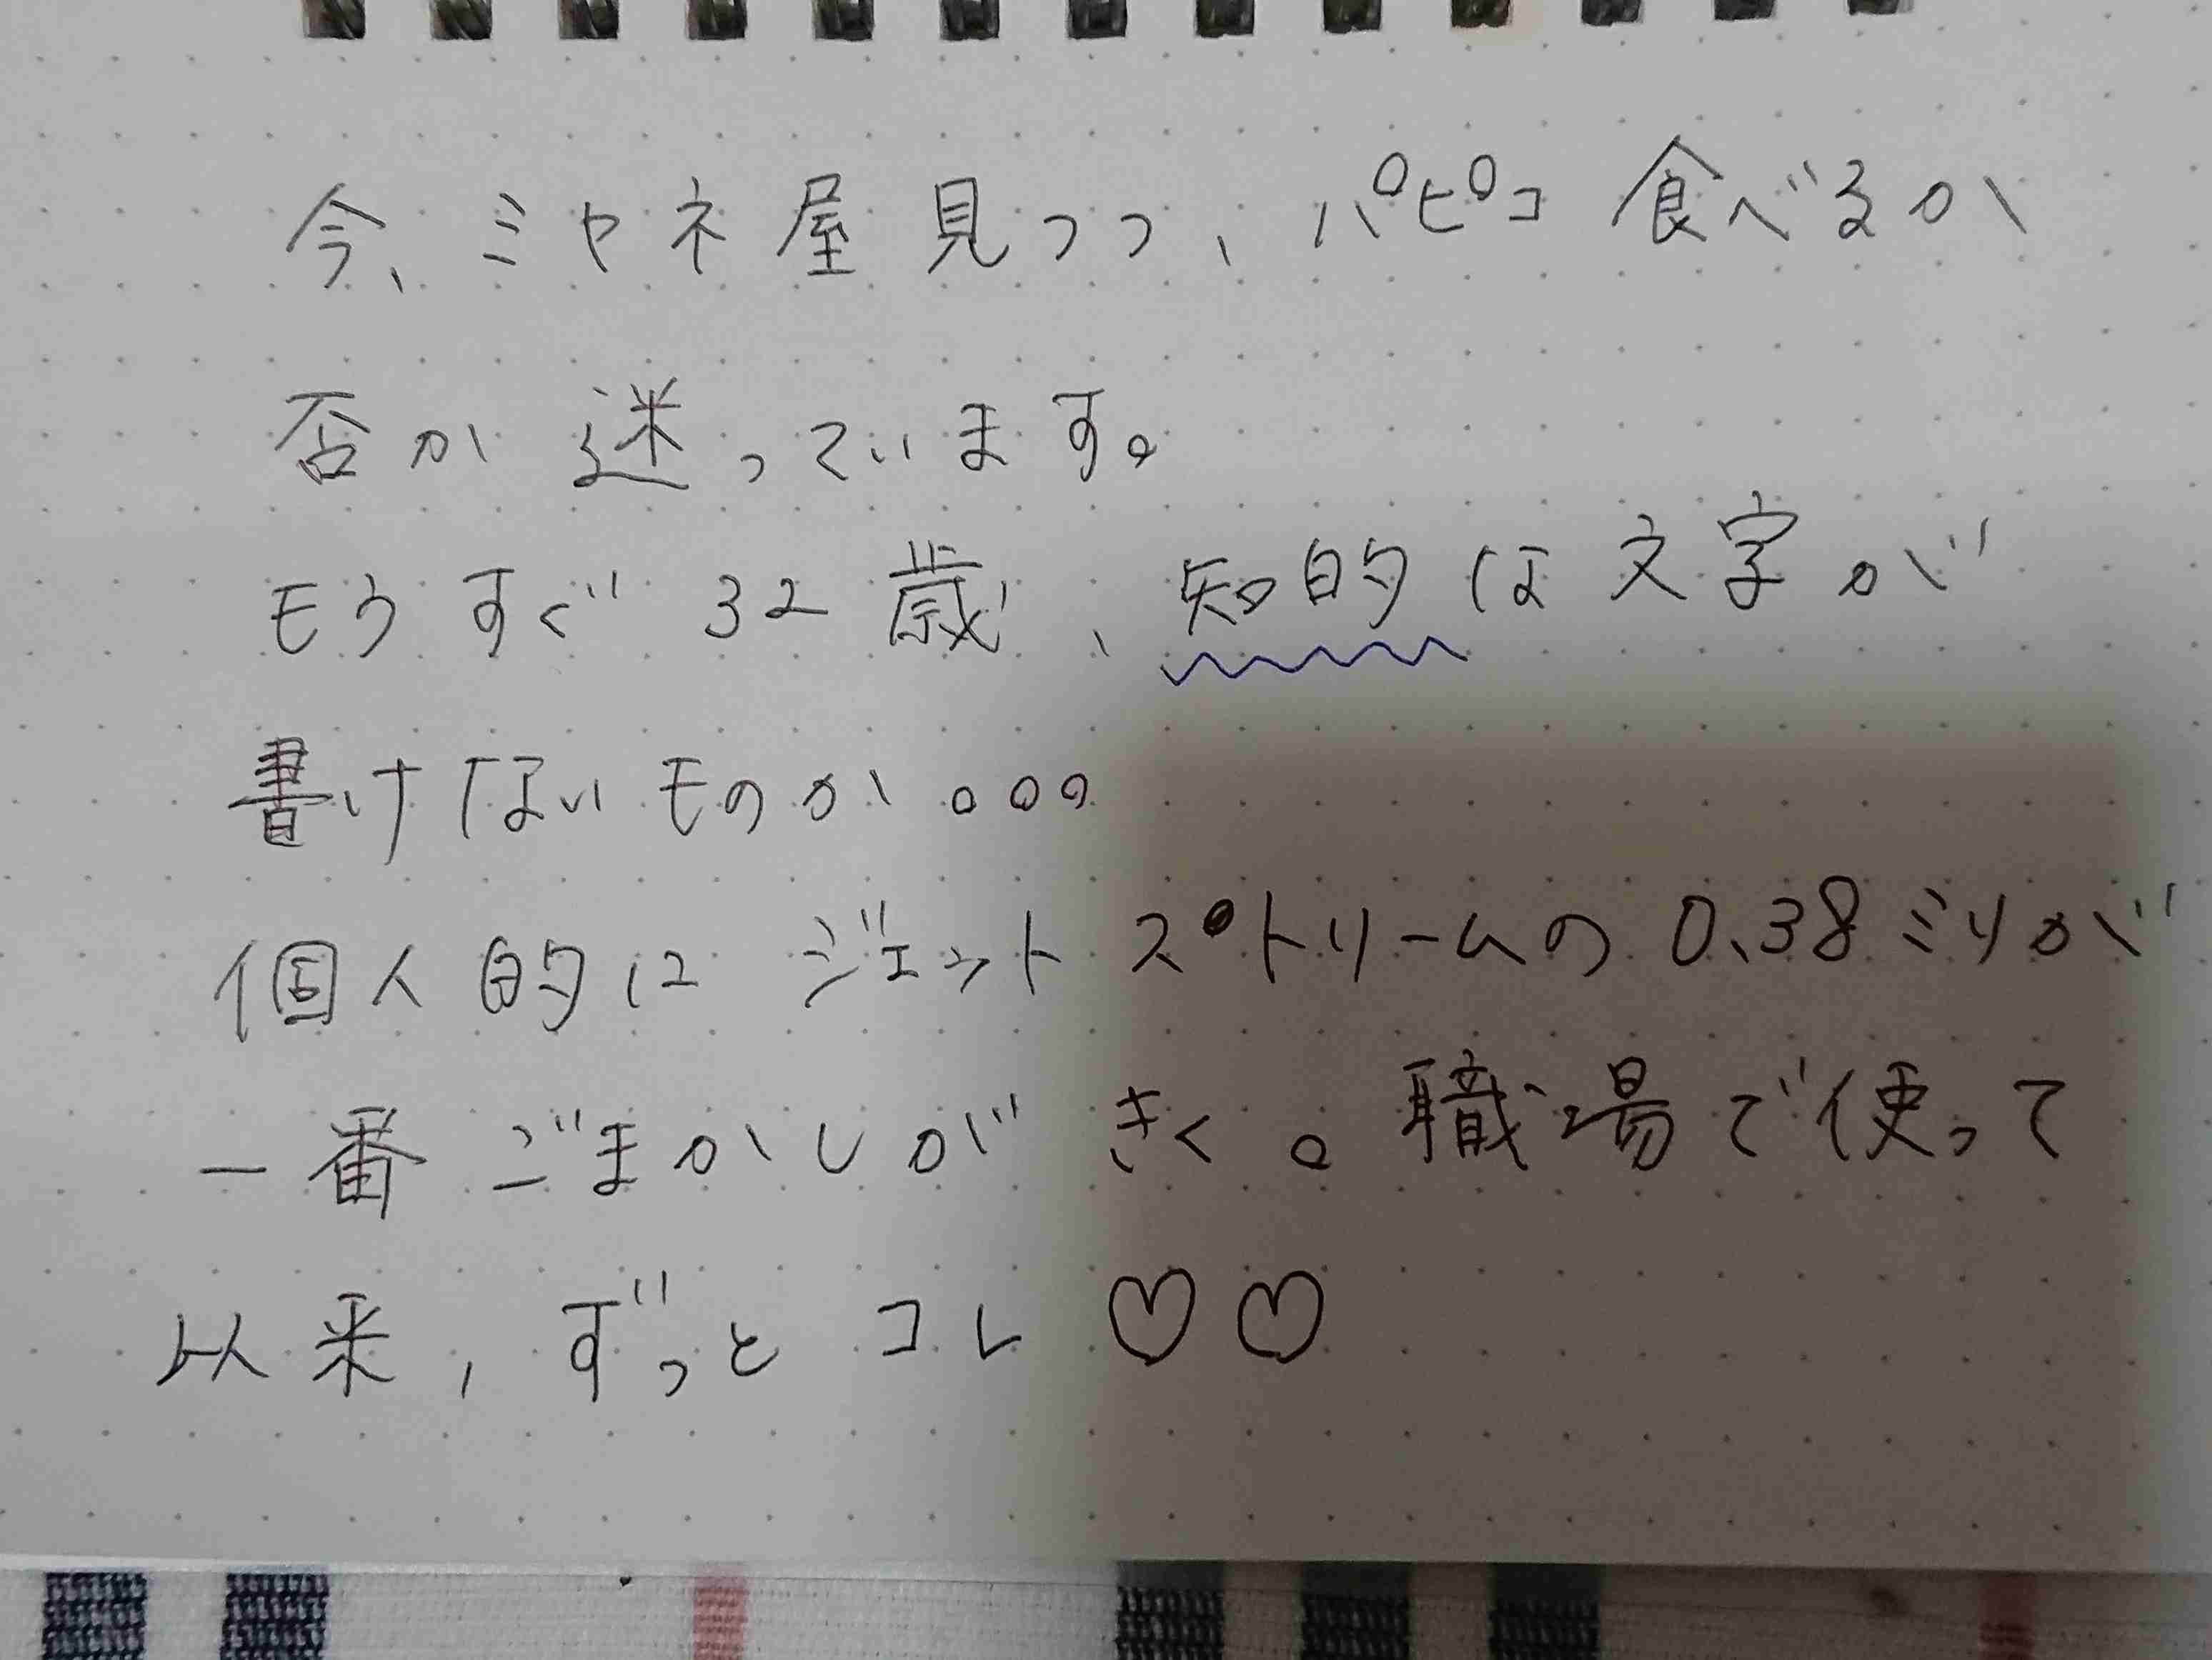 今、ミヤネ屋見つつ、パピコ食べるか
否か迷っています。
もうすぐ32歳、知的な文字が
書けないものか。。。
個人的にジェットストリームの0.38ミリが
一番ごまかしがきく。職場で使って
以来,ずっとコレ♡♡